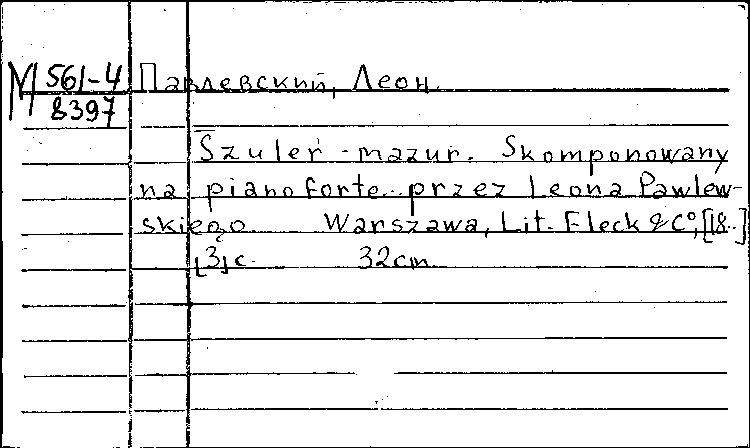 М 561-4 Павлевский, Леон.
8397
Szuler - mazur. Skomponowany
na piano forte przez Leona Pawlew-
skiego Warszawa, Lit. Fleck & C°, [18..]
[3] с. 32 cm.